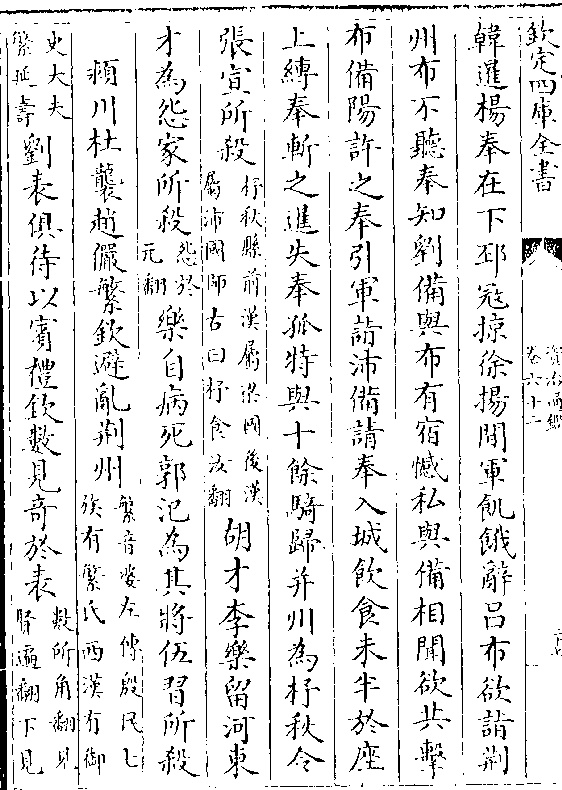 欽定四庫全書
資治通鑑
卷六十二
韓暹楊奉在下邳寇掠徐揚間軍飢餓辭呂布欲詣荆
州布不聽奉知劉備與布有宿憾私與備相聞欲共擊
布備陽許之奉引軍詣沛備請奉入城飲食未半於座
上縛奉斬之暹失奉孤特與十餘騎歸并州為杼秋令
張宣所殺杼秋縣前漢屬梁國後漢屬沛國師古曰杼食汝翻胡才李樂留河東
才為怨家所殺怨於元翻樂自病死郭汜為其將伍習所殺
潁川杜襲趙儼繁欽避亂荆州繁音婆左傳殷民七族有繁氏西漢有御
史大夫繁延壽劉表俱待以賓禮欽數見奇於表數所角翻見賢遍翻下見